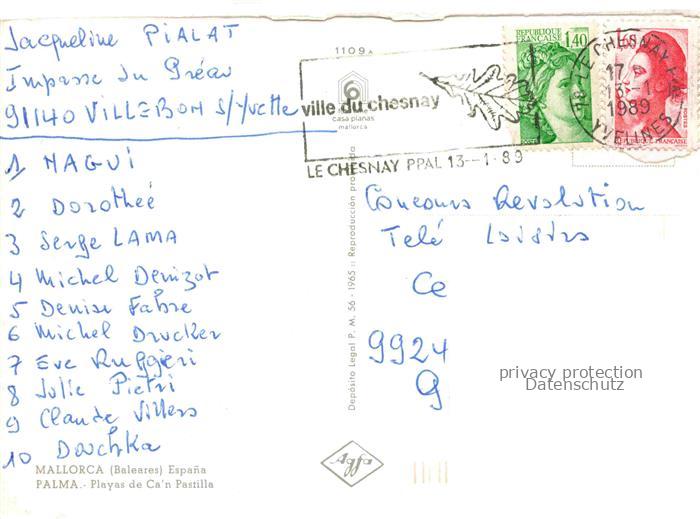 Jacqueline PIALAT
Impasse du Préau
91140 VILLEBON S/Yvette
1 MAGUI
2 Dorotheé
3 Serge LAMA
4 Michel Denizot
5 Denise Fabre
6 Michel Drucker
7 Eve Ruggieri
8 Julie Pietri
9 Claude Villers
10 Douchka
MALLORCA (Baleares) España
PALMA.- Playas de Ca'n Pastilla
1109
casa planas
mallorca
Depósito Legal P. M. 56 - 1965 :: Reproducción prohibida
Agfa
ville du chesnay
LE CHESNAY PPAL 13--1-89
REPUBLIQUE
FRANÇAISE
1,40
78 LE CHESNAY
17
13-1
1989
YVELINES
REPUBLIQUE FRANÇAISE
Concours Revolution
Telé Loisirs
Ce
9924
9
privacy protection
Datenschutz